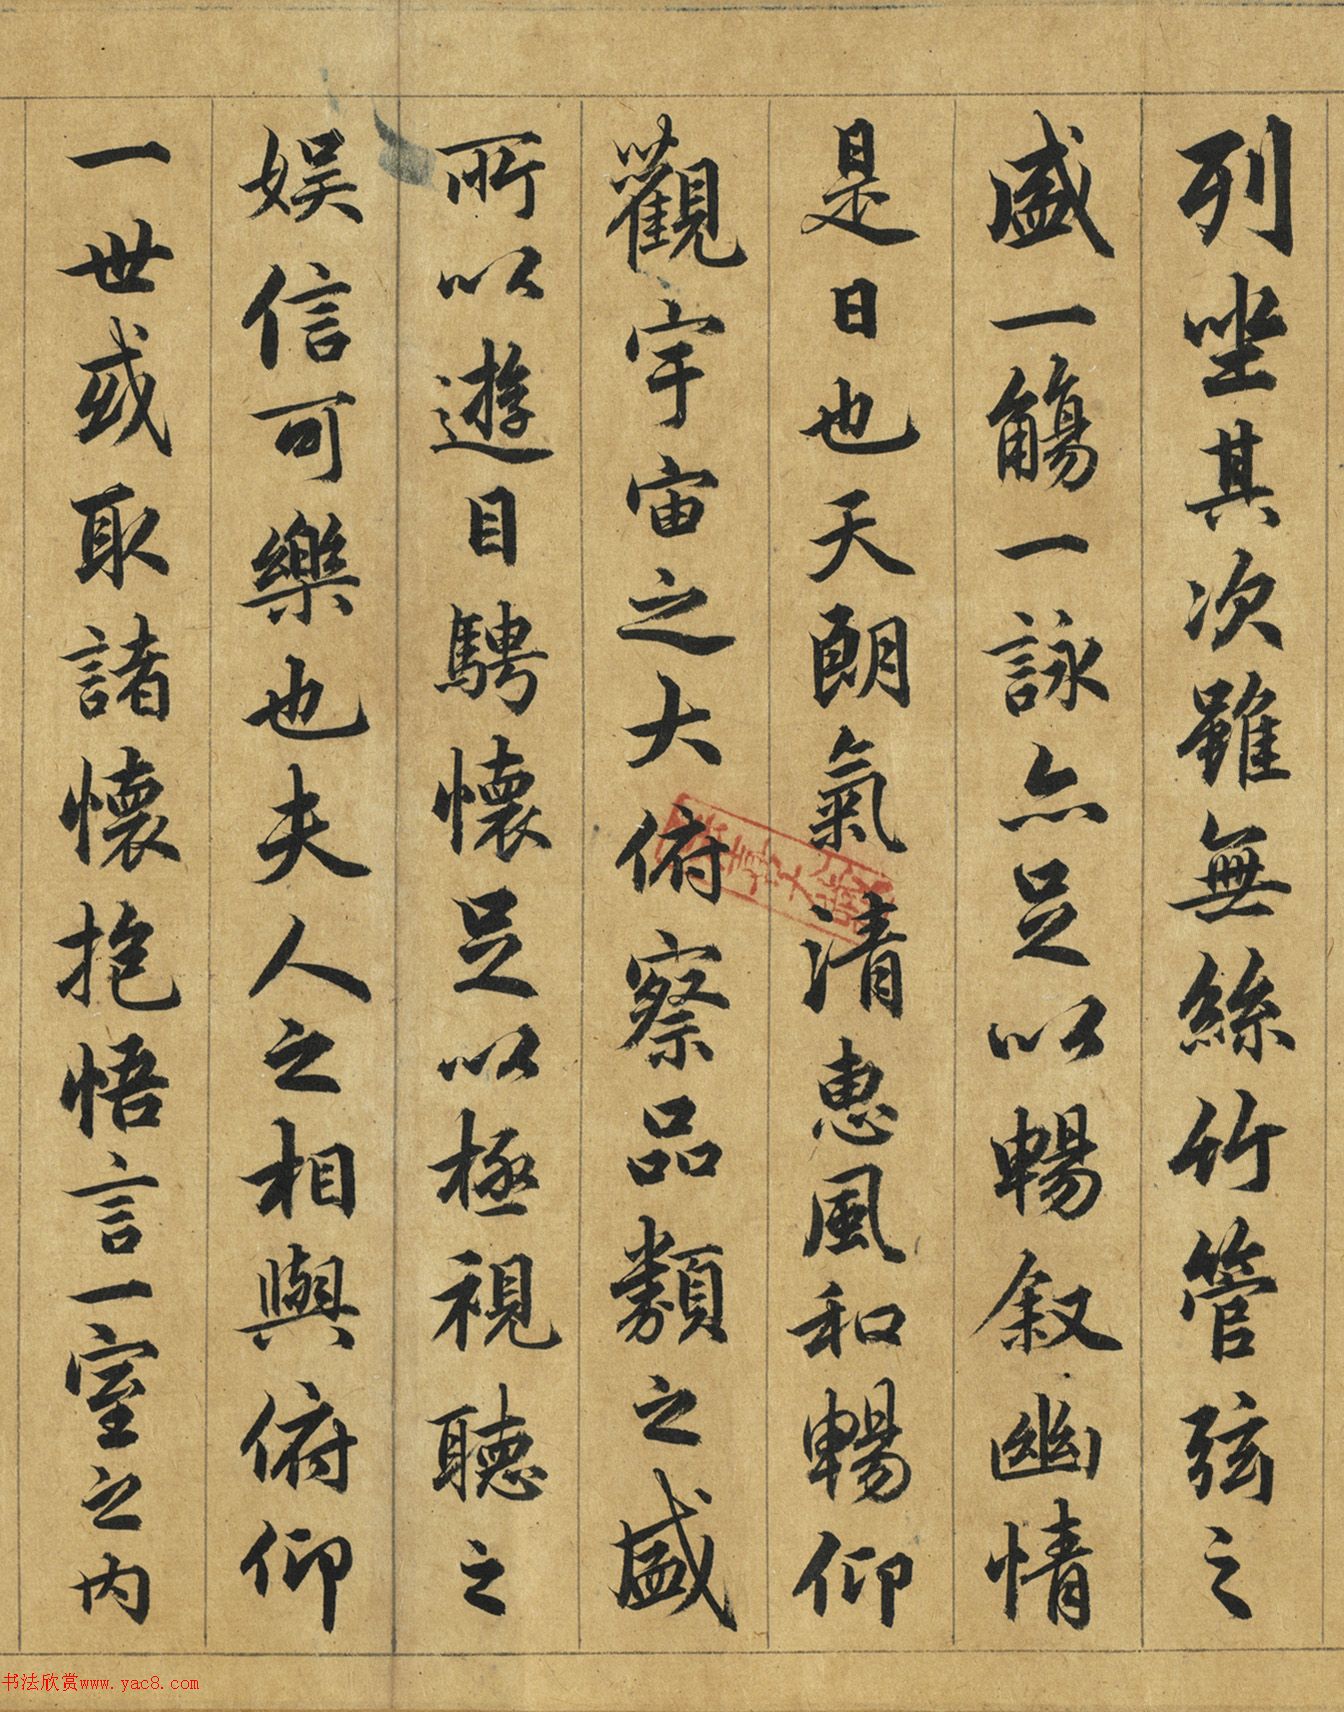 列坐其次雖無絲竹管弦之
盛一觴一詠亦足以暢敘幽情
是日也天朗氣清惠風和暢仰
觀宇宙之大俯察品類之盛
所以遊目騁懷足以極視聽之
娛信可樂也夫人之相與俯仰
一世或取諸懷抱悟言一室之內
书法欣赏www.yac8.com